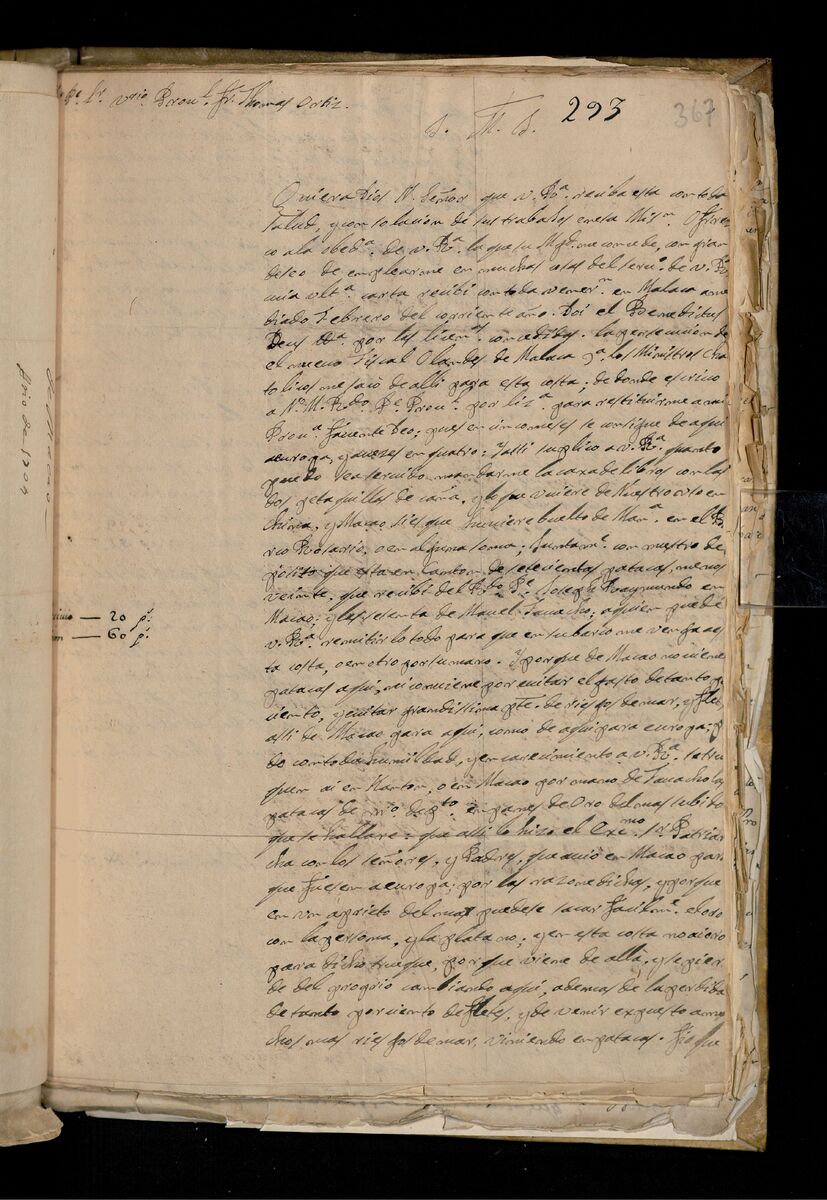 Pe. Fr. vrio. Provl. Fr. Thomas Ortiz.
J. M. J. 293 367
Quiera Dios N. Señor que v. Ra. reciba esta con toda
salud, y consolacion de sus trabajos en esta Misn. Ofrez
co a la obeda. de v. Ra. la que su Mgd. me concede, con gran
deseo de emplearme en muchas cosas del servo. de v. Ra.
una ulta. carta recibi con toda venern. en Malaca a me
diado Febrero del corriente año. Doi el Benedictus
Deus por las concedidas. la persecucion de
el nuevo Fiscal Olandes de Malaca pa. los Ministros Cha
tolicos me sacó de alli para esta costa; de donde escrivo
a N. M. Rdo. Pe. Provl. por liza. para restituirme a mi
Prova. favente Deo; pues en cinco meses se consigue de aqui
a europa, y a vezes en quatro: Y assi suplico a v. Ra. quanto
puedo sea servido mandarme la caxa de libros con las
dos petaquillas de caña, y lo que viniere de Nuestro uso en
China, y Macao, si es que huviere buelto de Mana. en el
Rosario, o en alguna soma; juntamte. con nuestro de
posito que esta en Canton de setecientas patacas, menos
veinte, que recibi del Rdo. Pe. Joseph Raymundo en
Macao; y las sesenta de Manel Favacho; a quien puede
v. Ra. remitirlo todo para que en su barco me venga a es
ta costa, o en otro por su mano. Y porque de Macao no vienen
patacas aqui, ni conviene por evitar el gasto de tanto por
ciento, y evitar grandissima pte. de riesgos de mar, y fletes
assi de Macao para aqui, como de aqui para europa; pi
do con toda humildad, y encarecimiento a v. Ra. se true
quen ai en Kanton, o en Macao por mano de Favacho las
patacas de nro. depto. en panes de Oro del mas subido
que se hallare: que assi lo hizo el Exmo. Sr. Patriar
cha con los señores, y Padres, que avió en Macao para
que fuesen a europa; por las razones dichas, y porque
en un aprieto del mar puedese sacar facilmte. el oro
con la persona, y la plata no; y en esta costa no ai oro
para dicho trueque, porque viene de allá, y se pier
de del proprio cambiando aqui, ademas de la perdida
de tanto por ciento de fletes, y de venir expuesto a mu
chos mas riesgos de mar, viniendo en patacas. Fio que
— 20 ps.
— 60 ps.
de Macao
Año de 1704